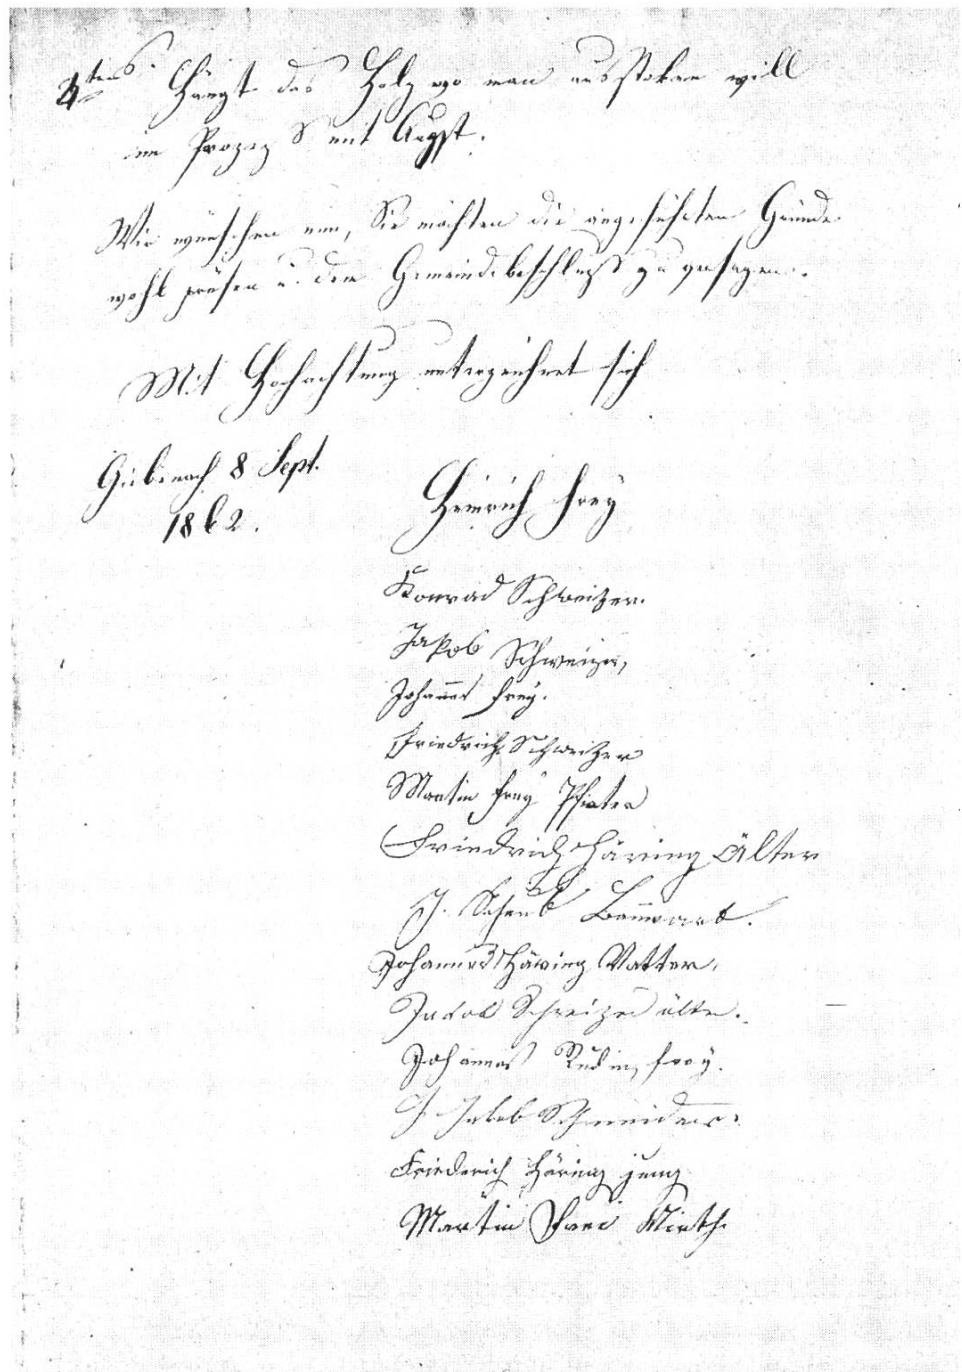 4tens Hängt das Holz wo man ausstoken will
im Prozeß mit Augst.
Wir wünschen nun, Sie möchten die angeführten Gründe
wohl prüfen u. den Gemeindebeschluß zu
Mit Hochachtung unterzeichnet sich
Giebenach 8 Sept.
1862.
Heinrich Frey
Konrad Schweitzer.
Jakob Schweizer,
Johannes Frey.
Friedrich Schweitzer
Martin Frey
Friedrich Häring Älter
J. Schaub Bannwart.
Johannes Häring Vatter,
Jakob Schweizer älter.
Johannes Rudin, Frey.
J Jakob Schneider.
Friederich Häring jung
Martin Frei Wirth